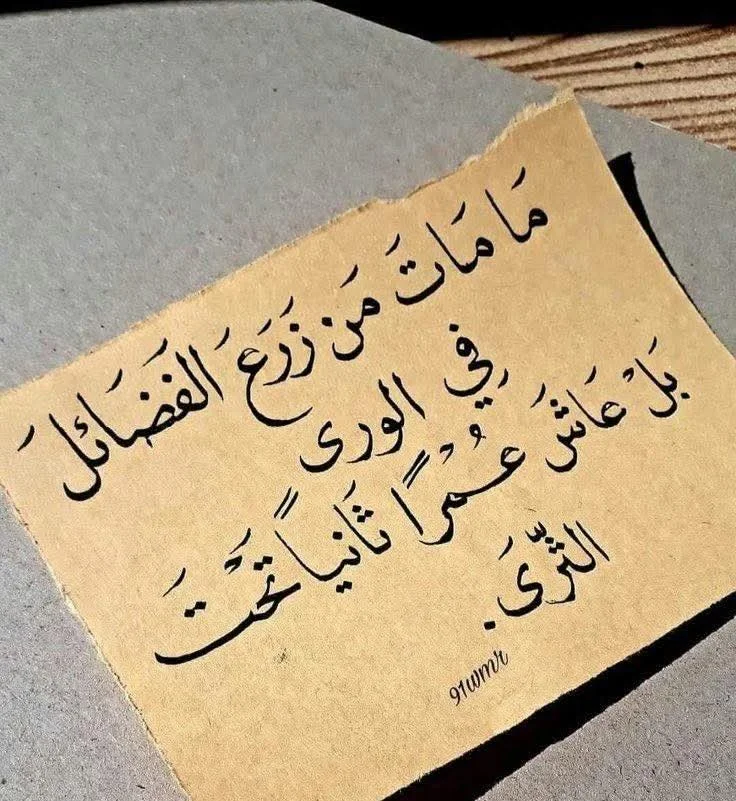 مَا مَاتَ مَن زَرَعَ الفَضَائلَ
فِي الورى
بَلْ عَاشَ عُمْرًا ثَانيًا تَحْتَ
الثَّرَى.
91wmr